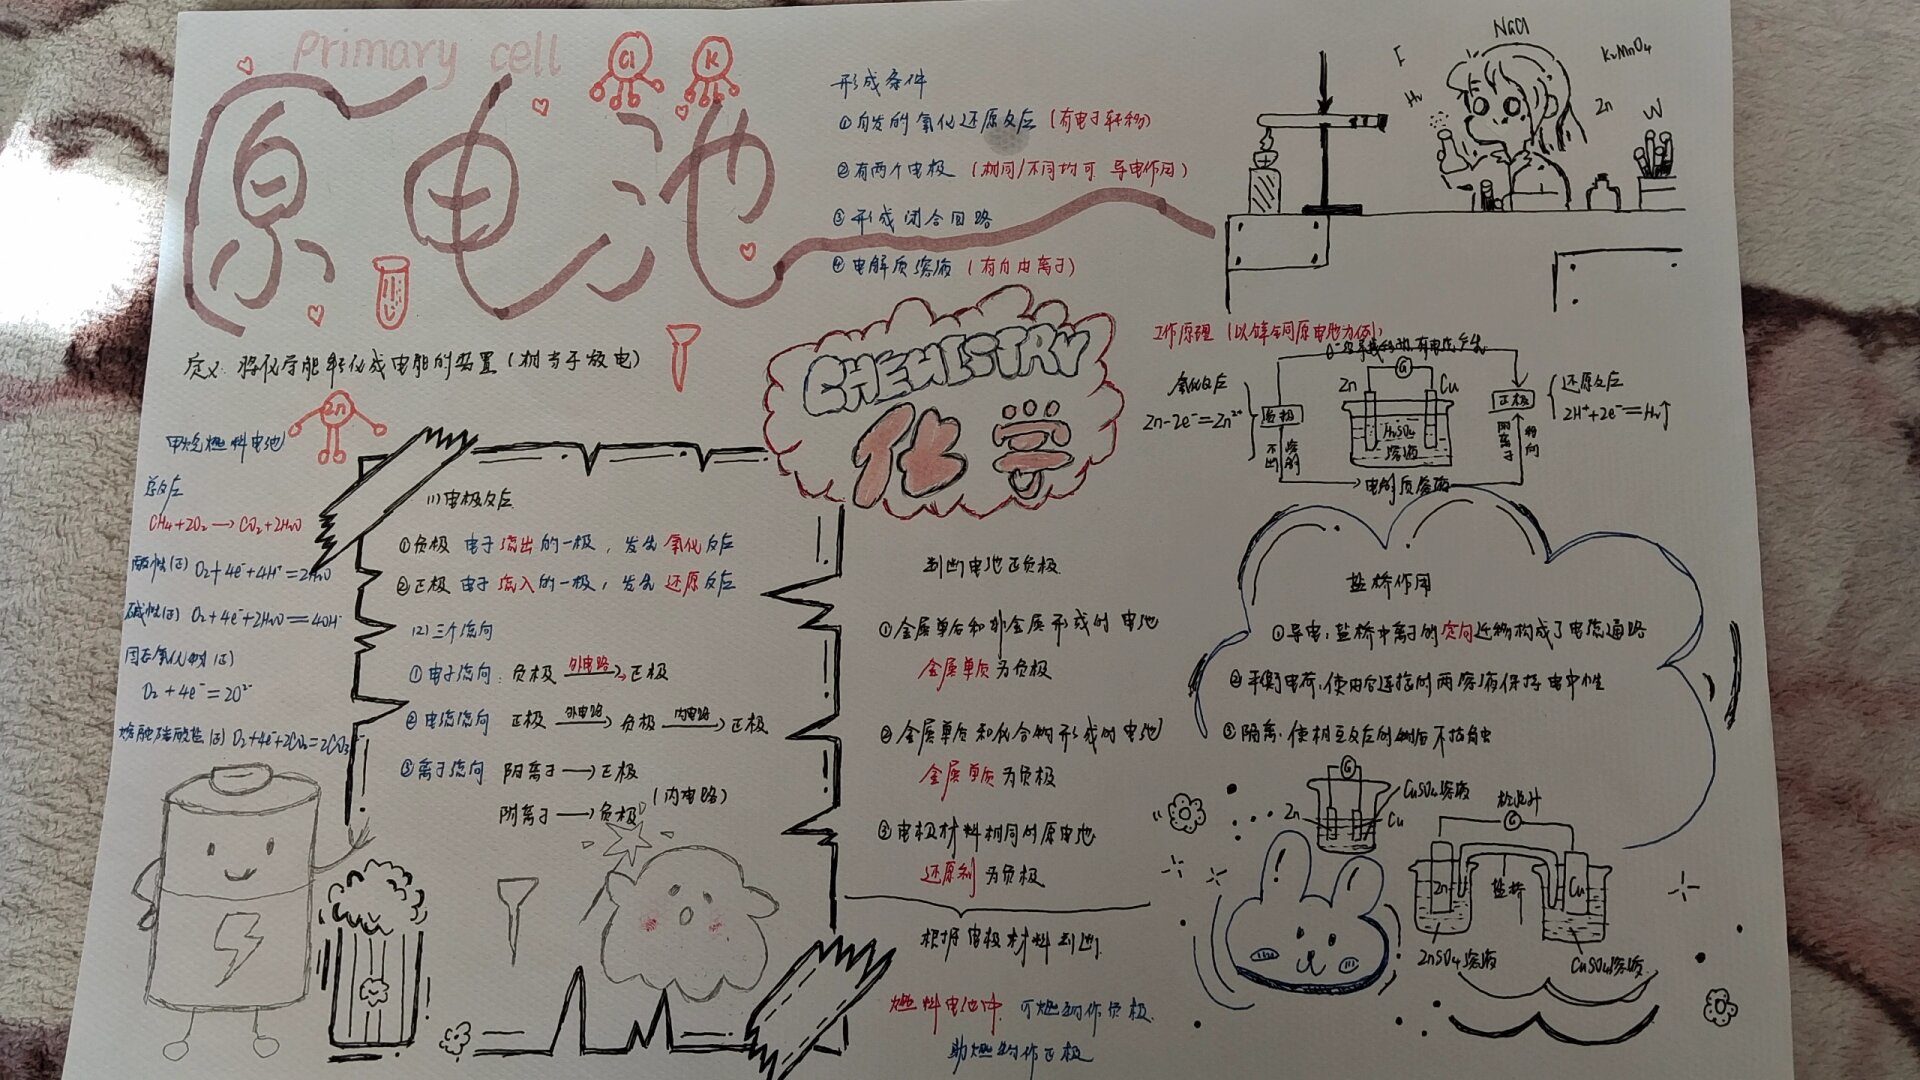 Primary cell
原电池
Cl
K
形成条件
①自发的氧化还原反应(有电子转移)
②有两个电极(相同/不同均可 导电作用)
③形成闭合回路
④电解质溶液(有自由离子)
NaCl
I
H₂
K₂MnO₄
Zn
W
定义:将化学能转化成电能的装置(相当于放电)
Zn
CHEMISTRY
化学
甲烷燃料电池
总反应
CH₄+2O₂→CO₂+2H₂O
酸性(正) O₂+4e⁻+4H⁺=2H₂O
碱性(正) O₂+4e⁻+2H₂O=4OH⁻
固态氧化物(正)
O₂+4e⁻=2O²⁻
熔融碳酸盐(正) O₂+4e⁻+2CO₂=2CO₃
(1)电极反应
①负极 电子流出的一极,发生氧化反应
②正极 电子流入的一极,发生还原反应
(2)三个流向
①电子流向:负极 外电路→正极
②电流流向 正极 外电路→负极 内电路→正极
③离子流向 阳离子→正极
阴离子→负极 (内电路)
判断电池正负极
①金属单质和非金属形成的电池
金属单质为负极
②金属单质和化合物形成的电池
金属单质为负极
③电极材料相同的原电池
还原剂为负极
根据电极材料判断
燃料电池中 可燃物作负极
助燃物作正极
工作原理(以锌铜原电池为例)
氧化反应
Zn-2e⁻=Zn²⁺
负极
Zn
G
Cu
H₂SO₄
溶液
正极
还原反应
2H⁺+2e⁻=H₂↑
电解质溶液
盐桥作用
①导电:盐桥中离子的定向迁移构成了电流通路
②平衡电荷:使由它连接的两溶液保持电中性
③隔离:使相互反应的物质不接触
G
Zn
Cu
CuSO₄溶液
G
Zn
盐桥
Cu
ZnSO₄溶液
CuSO₄溶液